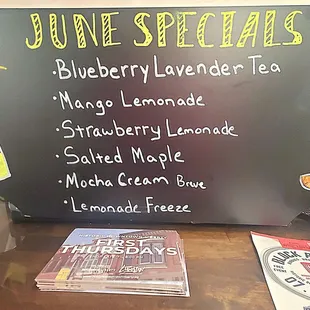 JUNE SPECIALS
·Blueberry Lavender Tea
·Mango Lemonade
·Strawberry Lemonade
·Salted Maple
·Mocha Cream Brwe
·Lemonade Freeze
FIRST
THURSDAYS
BLACK